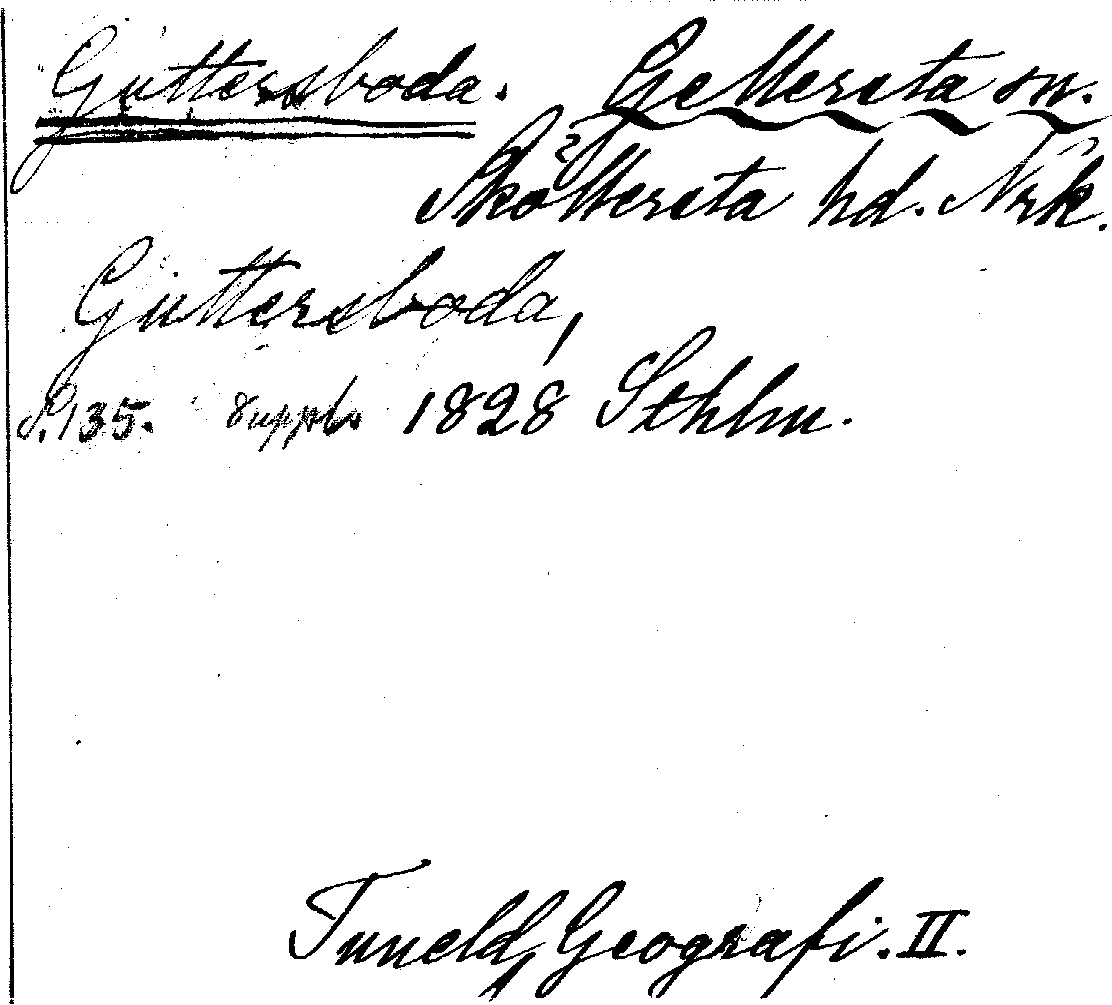 Guttersboda. Gellersta sn.
Sköllersta hd. Nrk.
Guttersboda,
S. 135. Suppl. 1828 Sthlm.
Tuneld, Geografi. II.